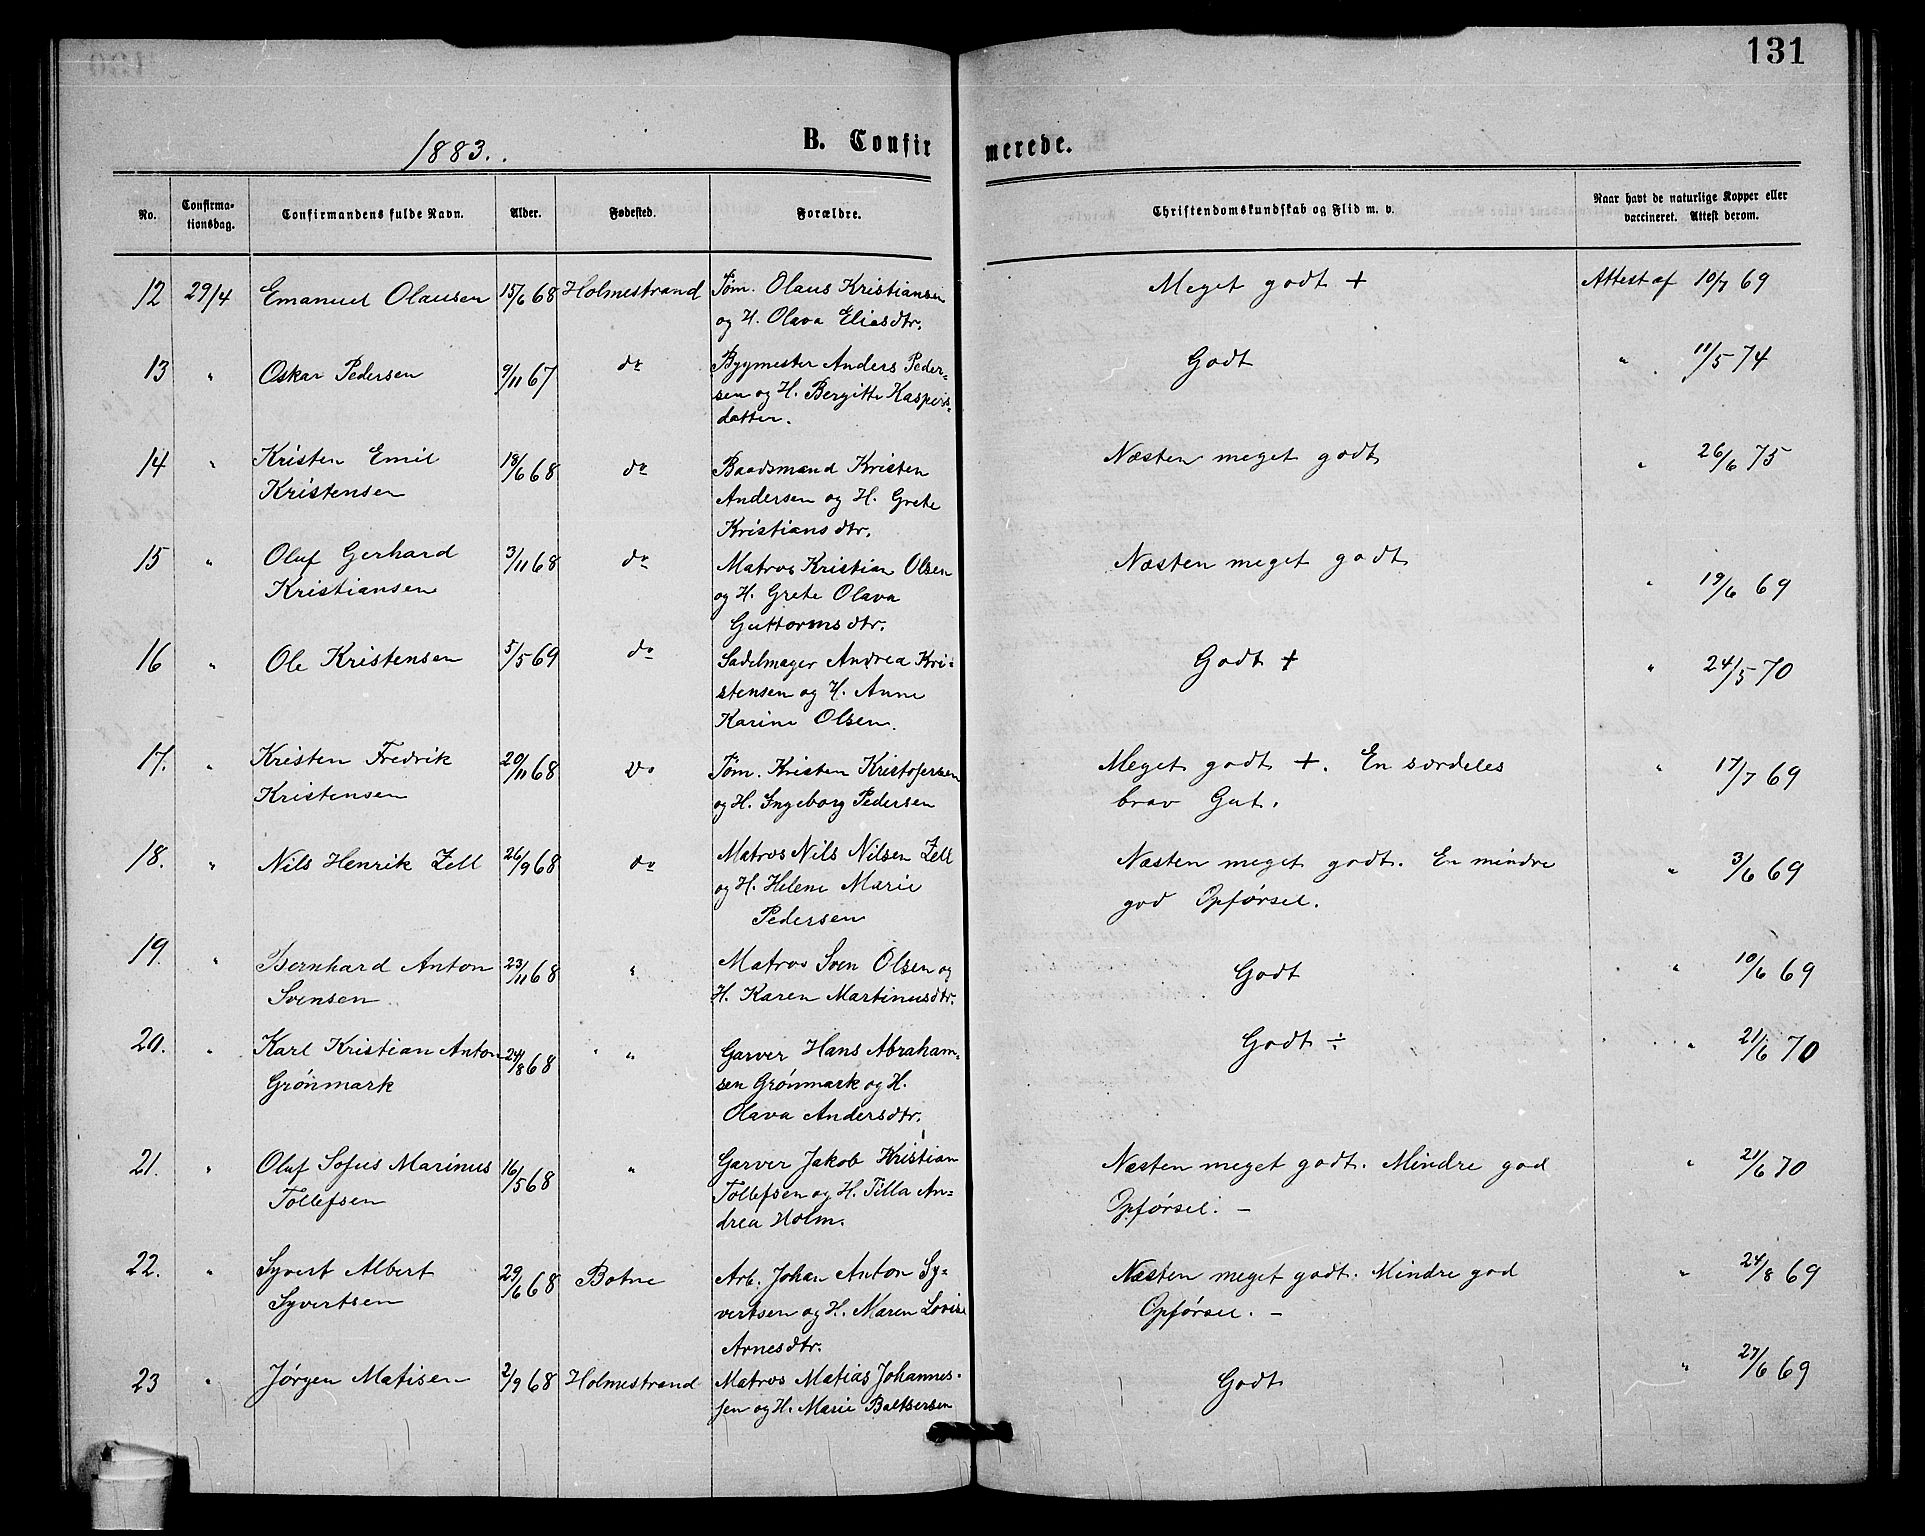 131
1883.
B. Confirmerede.
No. Confirmationsdag. Confirmandens fulde Navn. Alder. Fødested. Forældre. Christendomskundskab og Flid m. v. Naar havt de naturlige Kopper eller vaccineret. Attest derom.
12 29/4 Emanuel Olausen 15/6 68 Holmestrand Tøm. Olaus Kristiansen Meget godt + Attest af 10/7 69
og H. Olava Eliasdtr.
13 " Oskar Pedersen 9/11 67 do Bygmester Anders Peder- Godt " 11/5 74
sen og H. Bergitte Kaspers-
datter.
14 " Kristen Emil 18/6 68 do Baadsmand Kristen Næsten meget godt " 26/6 75
Kristensen Andersen og H. Grete
Kristiansdtr.
15 " Oluf Gerhard 3/11 68 do Matros Kristian Olsen Næsten meget godt " 19/6 69
Kristiansen og H. Grete Olava
Guttormsdtr.
16 " Ole Kristensen 5/5 69 do Sadelmager Andrea Kri- Godt + " 24/5 70
stensen og H. Anne
Karine Olsen.
17. " Kristen Fredrik 20/11 68 do Tøm. Kristen Kristofersen Meget godt +. En særdeles " 17/7 69
Kristensen og H. Ingeborg Pedersen brav Gut.
18. " Nils Henrik Zell 26/9 68 do Matros Nils Nilsen Zell Næsten meget godt. En mindre " 3/6 69
og H. Helene Marie god Opførsel.
Pedersen
19. " Bernhard Anton 23/11 68 " Matros Sven Olsen og Godt " 10/6 69
Svensen H. Karen Martinusdtr.
20. " Karl Kristian Anton 24/8 68 " Garver Hans Abraham- Godt ÷ " 21/6 70
Grönmark sen Grönmark og H.
Olava Andersdtr.
21. " Oluf Sofus Marinus 16/5 68 " Garver Jakob Kristian Næsten meget godt. Mindre god " 21/6 70
Tollefsen Tollefsen og H. Tilla An- Opførsel. –
drea Holm.
22. " Syvert Albert 29/6 68 Botne Arb. Johan Anton Sy- Næsten meget godt. Mindre god " 24/8 69
Syvertsen vertsen og H. Maren Lovise Opførsel. –
Arnesdtr.
23 " Jørgen Matisen 2/9 68 Holmestrand Matros Matias Johannes- Godt " 27/6 69
sen og H. Marie Baltsersen